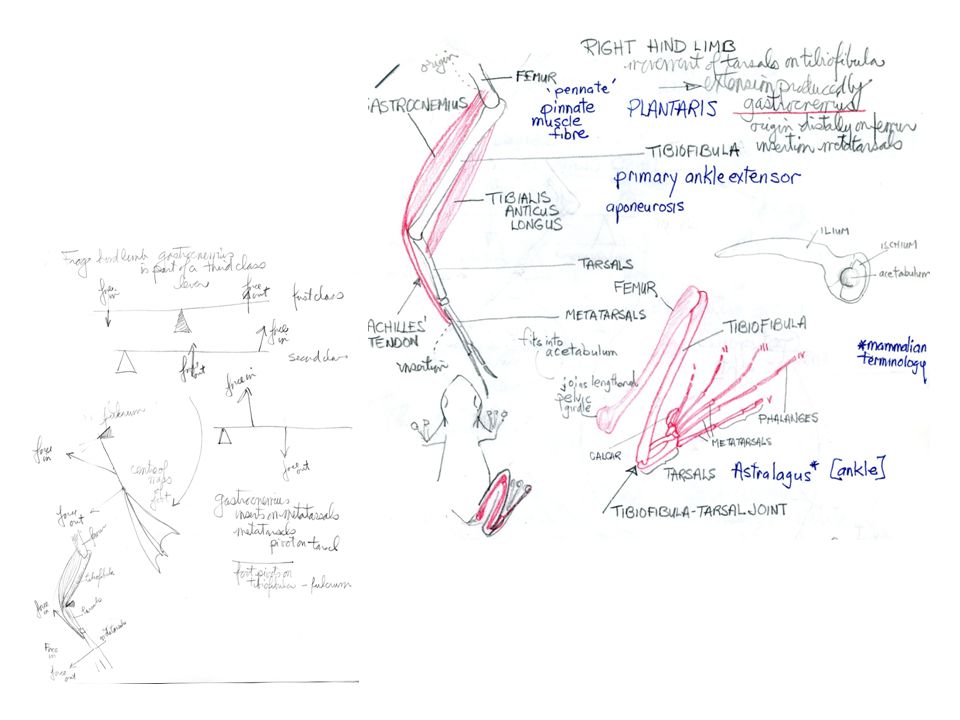 RIGHT HIND LIMB
movement of tarsals on tibiofibula
extension produced by
gastrocnemius
origin distally on femur
insertion metatarsals
origin
FEMUR
GASTROCNEMIUS
'pennate'
pinnate
muscle
fibre
PLANTARIS
TIBIOFIBULA
primary ankle extensor
aponeurosis
TIBIALIS
ANTICUS
LONGUS
TARSALS
METATARSALS
ACHILLES'
TENDON
insertion
ILIUM
ISCHIUM
acetabulum
FEMUR
TIBIOFIBULA
fits into
acetabulum
joins lengthened
pelvic
girdle
II
III
IV
V
PHALANGES
METATARSALS
CALCAR
TARSALS
Astralagus* [ankle]
TIBIOFIBULA-TARSAL JOINT
*mammalian
terminology
Frogs hind limb gastrocnemius
is part of a third class
lever
force
in
force
out
first class
force
in
second class
force
out
force in
force out
fulcrum
force
in
centre of
mass
of
foot
force
out
gastrocnemius
inserts on metatarsals
metatarsals
pivot on tarsal
foot pivots on
tibiofibula - fulcrum
femur
tibiofibula
force
in
tarsals
metatarsals
Force
in
force
out